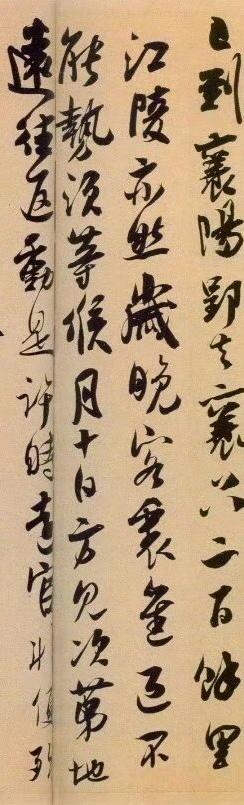 已到襄陽郢去襄二百餘里
江陵亦然歲晚客裏不
能勢須等候月十日方見次第地
遠往返動是許時官